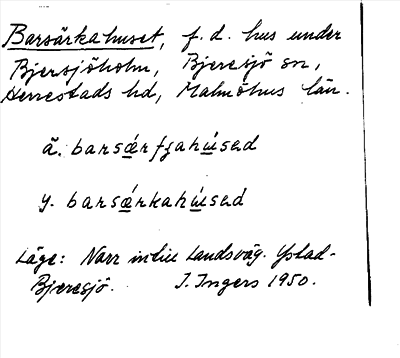 Barsärkahuset, f.d. hus under
Bjersjöholm, Bjeresjö sn,
Herrestads hd, Malmöhus län.
ä. barsǽrfʒahúsəd
y. barsǽrkahúsəd
Läge: Norr intill landsväg. Ystad-
Bjeresjö. I. Ingers 1950.